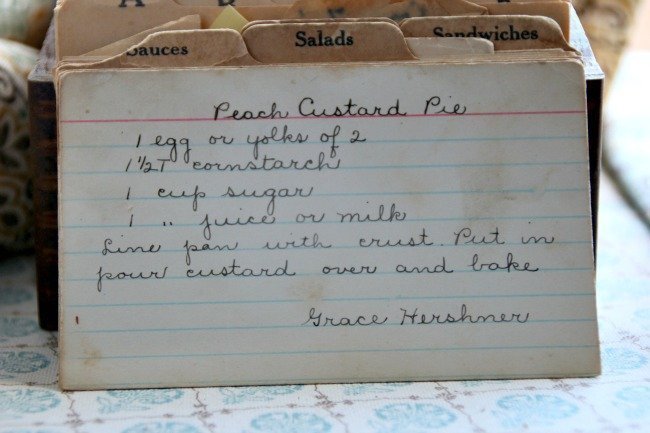 A
Sauces
Salads
Sandwiches
Peach Custard Pie
1 egg or yolks of 2
1 1/2T cornstarch
1 cup sugar
1 " juice or milk
Line pan with crust. Put in
pour custard over and bake
Grace Hershner